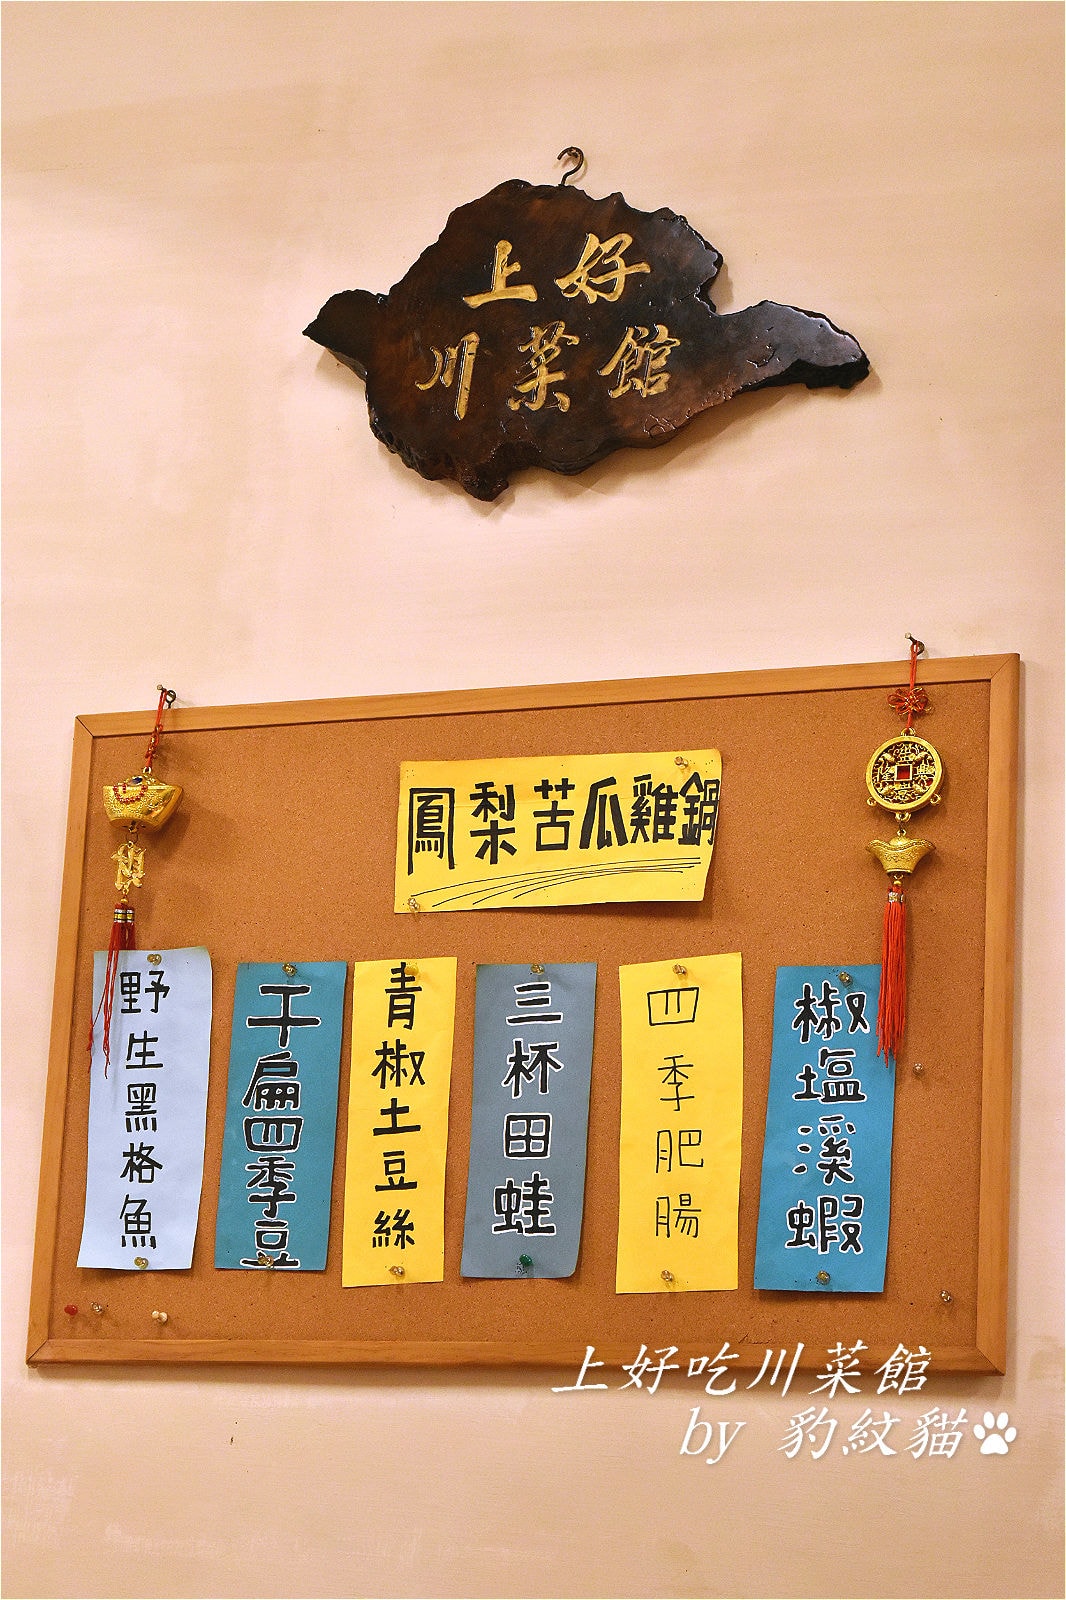 上好
川菜館
鳳梨苦瓜雞鍋
野生黑格魚
干扁四季豆
青椒土豆絲
三杯田蛙
四季肥腸
椒塩溪蝦
上好吃川菜館
by 豹紋貓